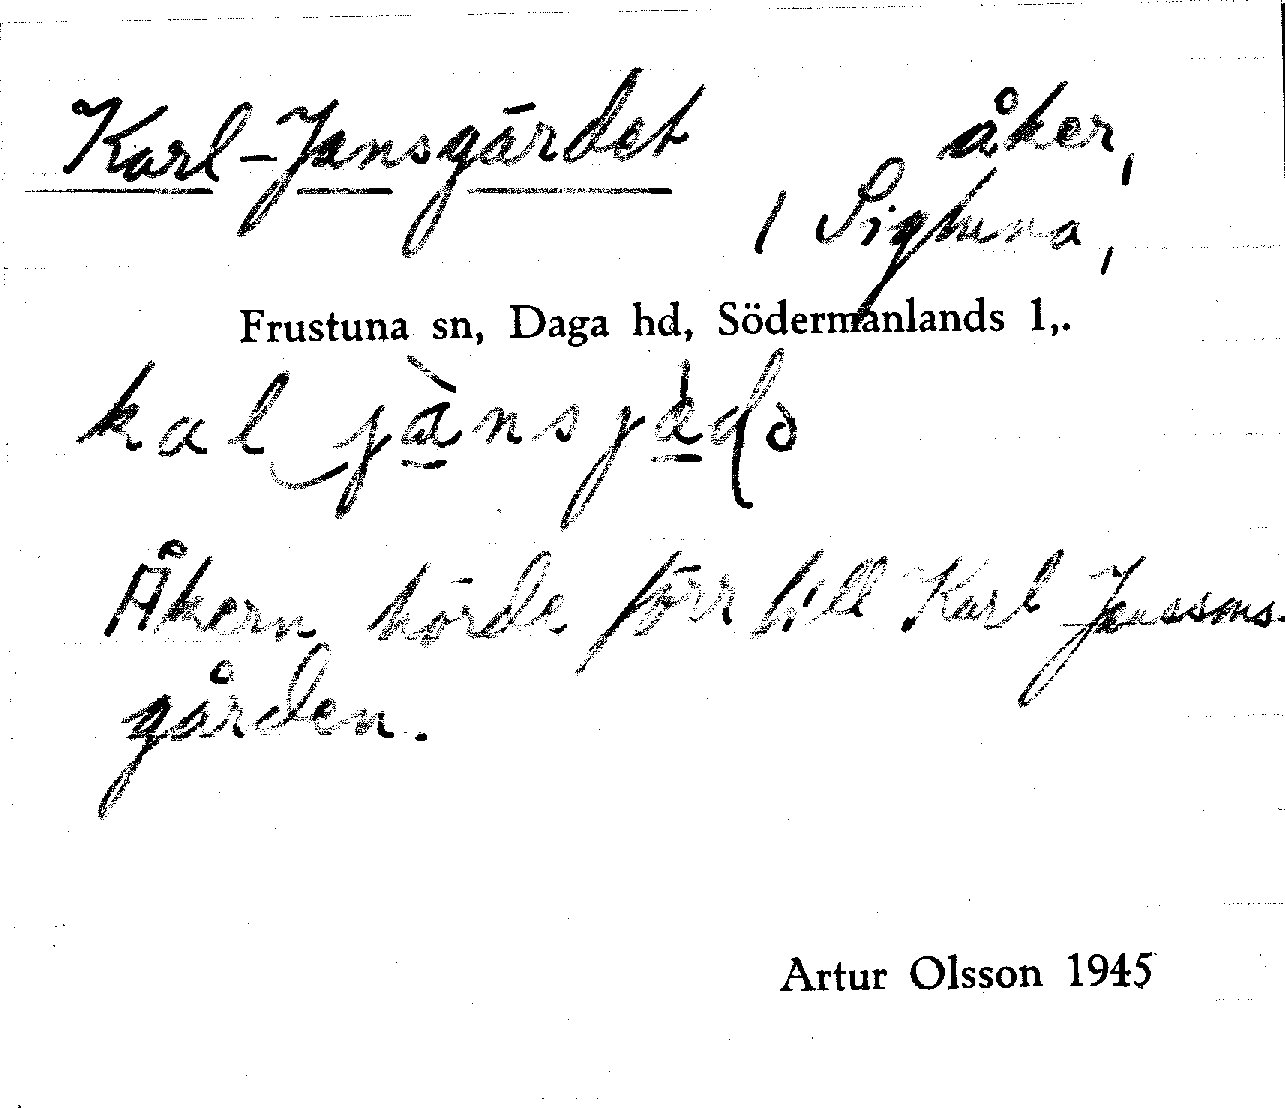 Karl-Jansgärdet åker,
/ Sigtuna,
Frustuna sn, Daga hd, Södermanlands l,.
Åkern hörde förr till Karl Janssons-
gården.
Artur Olsson 1945